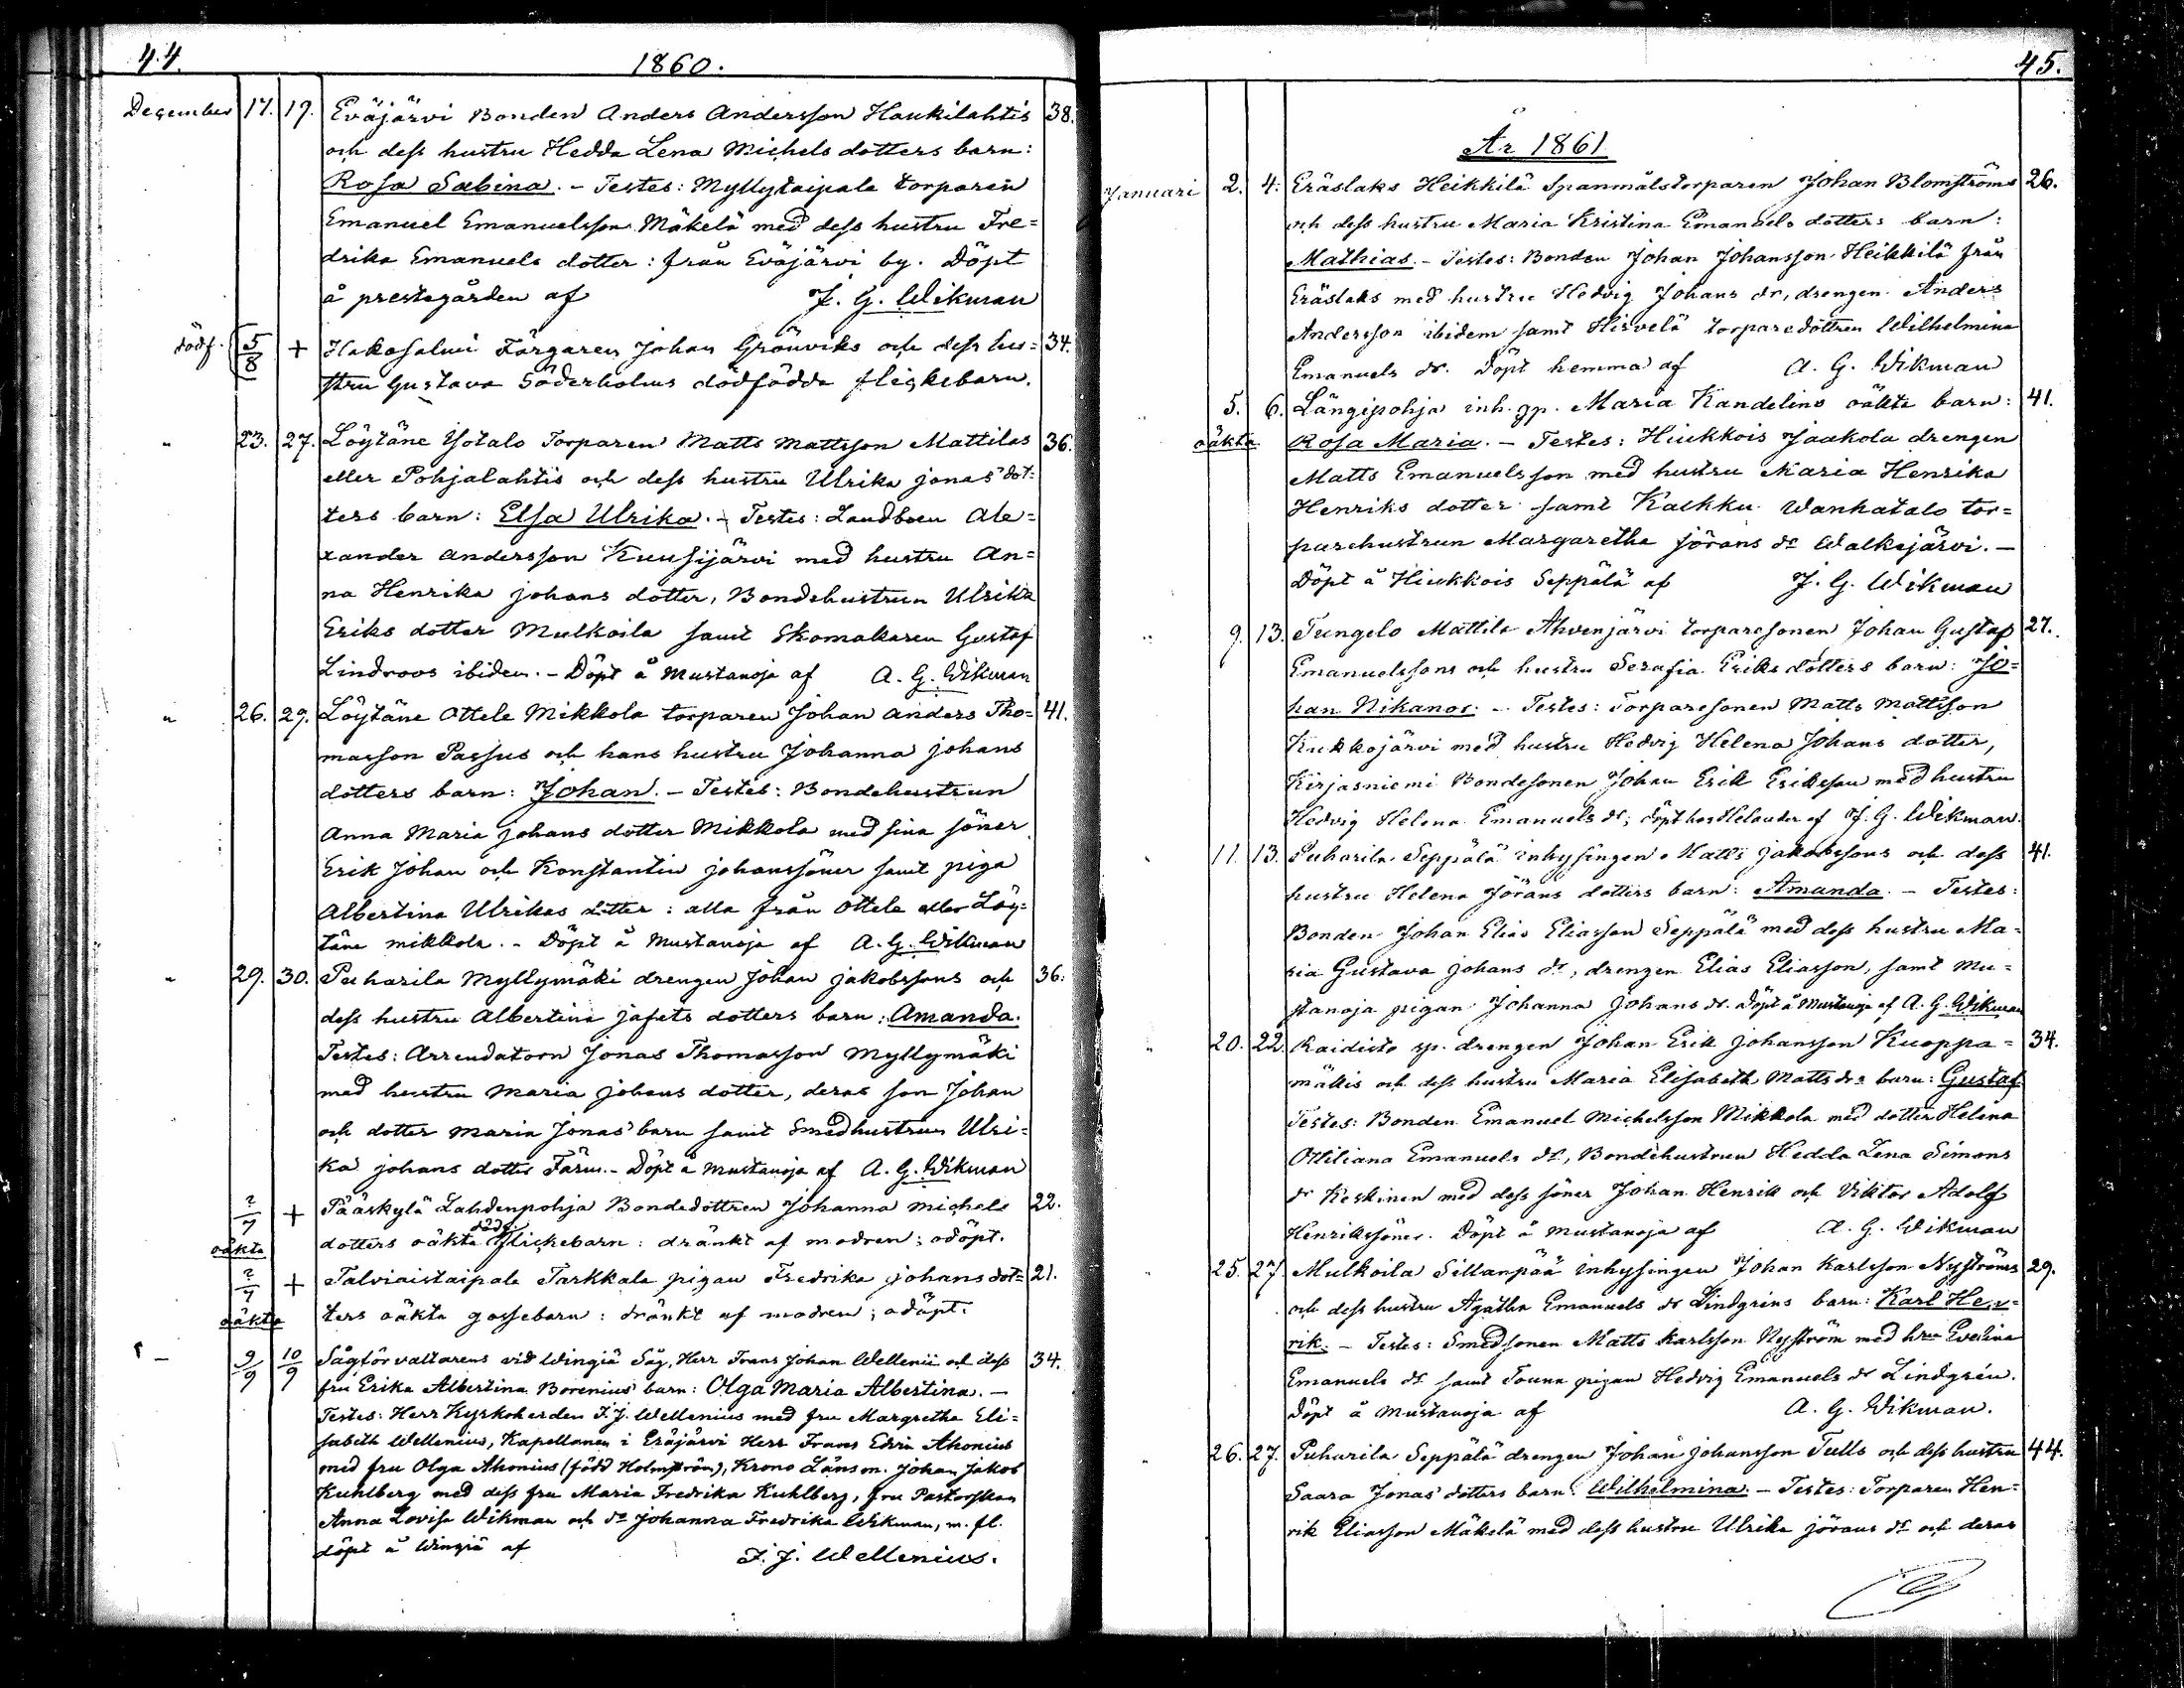 44.
1860.
December 17. 19. Eväjärvi Bonden Anders Andersson Haukilahtis 38.
och dess hustru Hedda Lena Michels dotters barn:
Rosa Sabina. - Testes: Myllytaipale torparen
Emanuel Emanuelsson Mäkelä med dess hustru Fre=
drika Emanuels dotter: från Eväjärvi by. Döpt
å prestegården af J. G. Wikman
dödf. 5/8 + Hakosalmi Färgaren Johan Grönviks och dess hu= 34.
stru Gustava Söderholms dödfödda flickebarn.
" 23. 27. Löytäne Yotalo Torparen Matts Mattsson Mattilas 36.
eller Pohjalahtis och dess hustru Ulrika Jonas dot=
ters barn: Elsa Ulrika. - Testes: Landboen Ale=
xander Andersson Kuusijärvi med hustru An=
na Henrika Johans dotter, Bondehustrun Ulrika
Eriks dotter Mulkoila samt Skomakaren Gustaf
Lindroos ibidem. - Döpt å Mustanoja af A. G. Wikman
" 26. 29. Löytäne Ottele Mikkola torparen Johan Anders Tho= 41.
masson Passus och hans hustru Johanna Johans
dotters barn: Johan. - Testes: Bondehustrun
Anna Maria Johans dotter Mikkola med sina söner
Erik Johan och Konstantin Johanssöner samt piga
Albertina Ulrikas dotter: alla från Ottele eller Löy=
täne Mikkola. - Döpt å Mustanoja af A. G. Wikman
" 29. 30. Puharila Myllymäki drengen Johan Jakobssons och 36.
dess hustru Albertina Jafets dotters barn: Amanda.
Testes: Arrendatorn Jonas Thomasson Myllymäki
med hustru Maria Johans dotter, deras son Johan
och dotter Maria Jonas' barn samt Smedhustrun Ulri=
ka Johans dotter Färm. - Döpt å Mustanoja af A. G. Wikman
?/7 + Pääskylä Lahdenpohja Bondedottren Johanna Michels 22.
oäkta dotters oäkta dödf. flickebarn: dränkt af modren; odöpt.
?/7 + Talviaistaipale Tarkkala pigan Fredrika Johans dot= 21.
oäkta ters oäkta gossebarn: dränkt af modren; odöpt.
9/9 10/9 Sågförvaltarens vid Wingiä Såg, Herr Frans Johan Wellenii och dess 34.
fru Erika Albertina Borenius' barn: Olga Maria Albertina. -
Testes: Herr Kyrkoherden F. J. Wellenius med fru Margretha Eli=
sabeth Wellenius, Kapellanen i Eräjärvi Herr Frans Edvin Ahonius
med fru Olga Ahonius (född Holmström), Krono Länsm. Johan Jakob
Kuhlberg med dess fru Maria Fredrika Kuhlberg, fru Pastorskan
Anna Lovisa Wikman och dr Johanna Fredrika Wikman, m. fl.
döpt å Wingiä af F. J. Wellenius.
45.
År 1861
Januari 2. 4. Eräslaks Heikkilä Spanmålstorparen Johan Blomströms 26.
och dess hustru Maria Kristina Emanuels dotters barn:
Mathias. - Testes: Bonden Johan Johansson Heikkilä från
Eräslaks med hustru Hedvig Johans dr, drengen Anders
Andersson ibidem samt Hirvelä torparedottren Wilhelmina
Emanuels dr. Döpt hemma af A. G. Wikman
" 5. 6. Längipohja inh. Maria Kandelins oäkta barn: 41.
oäkta Rosa Maria. - Testes: Hiukkois Jaakola drengen
Matts Emanuelsson med hustru Maria Henrika
Henriks dotter samt Kaekku Wanhatalo tor=
parehustrun Margaretha Jörans dr Walkejärvi. -
Döpt å Hiukkois Seppälä af J. G. Wikman
" 9. 13. Tungelo Mattila Ahvenjärvi torparesonen Johan Gustaf 27.
Emanuelssons och hustru Serafia Eriks dotters barn: Jo=
han Nikanor. - Testes: Torparesonen Matts Mattsson
Kukkojärvi med hustru Hedvig Helena Johans dotter,
Kirjasniemi Bondesonen Johan Erik Eriksson med hustru
Hedvig Helena Emanuels dr; döpt hos Helander af J. G. Wikman.
" 11. 13. Puharila Seppälä inhysingen Matts Jakobssons och dess 41.
hustru Helena Jörans dotters barn: Amanda. - Testes:
Bonden Johan Elias Eliasson Seppälä med dess hustru Ma=
ria Gustava Johans dr, drengen Elias Eliasson, samt Mu=
stanoja pigan Johanna Johans dr. Döpt å Mustanoja af A. G. Wikman
" 20. 22. Raidisto sp. drengen Johan Erik Johansson Kuoppa= 34.
mäkis och dess hustru Maria Elisabeth Matts drs barn: Gustaf
Testes: Bonden Emanuel Michelsson Mikkola med dotter Helena
Ottiliana Emanuels dr, Bondehustrun Hedda Lena Simons
dr Keskinen med dess söner Johan Henrik och Viktor Adolf
Henrikssöner. Döpt å Mustanoja af A. G. Wikman
" 25. 27. Mulkoila Sillanpää inhysingen Johan Karlsson Nyströms 29.
och dess hustru Agatha Emanuels dr Lindgrens barn: Karl Hen=
rik. - Testes: Smedsonen Matts Karlsson Nyström med hru Evelina
Emanuels dr samt Touna pigan Hedvig Emanuels dr Lindgrén.
Döpt å Mustanoja af A. G. Wikman.
" 26. 27. Puharila Seppälä drengen Johan Johansson Tulls och dess hustru 44.
Saara Jonas' dotters barn: Wilhelmina. - Testes: Torparen Hen=
rik Eliasson Mäkelä med dess hustru Ulrika Jörans dr och deras